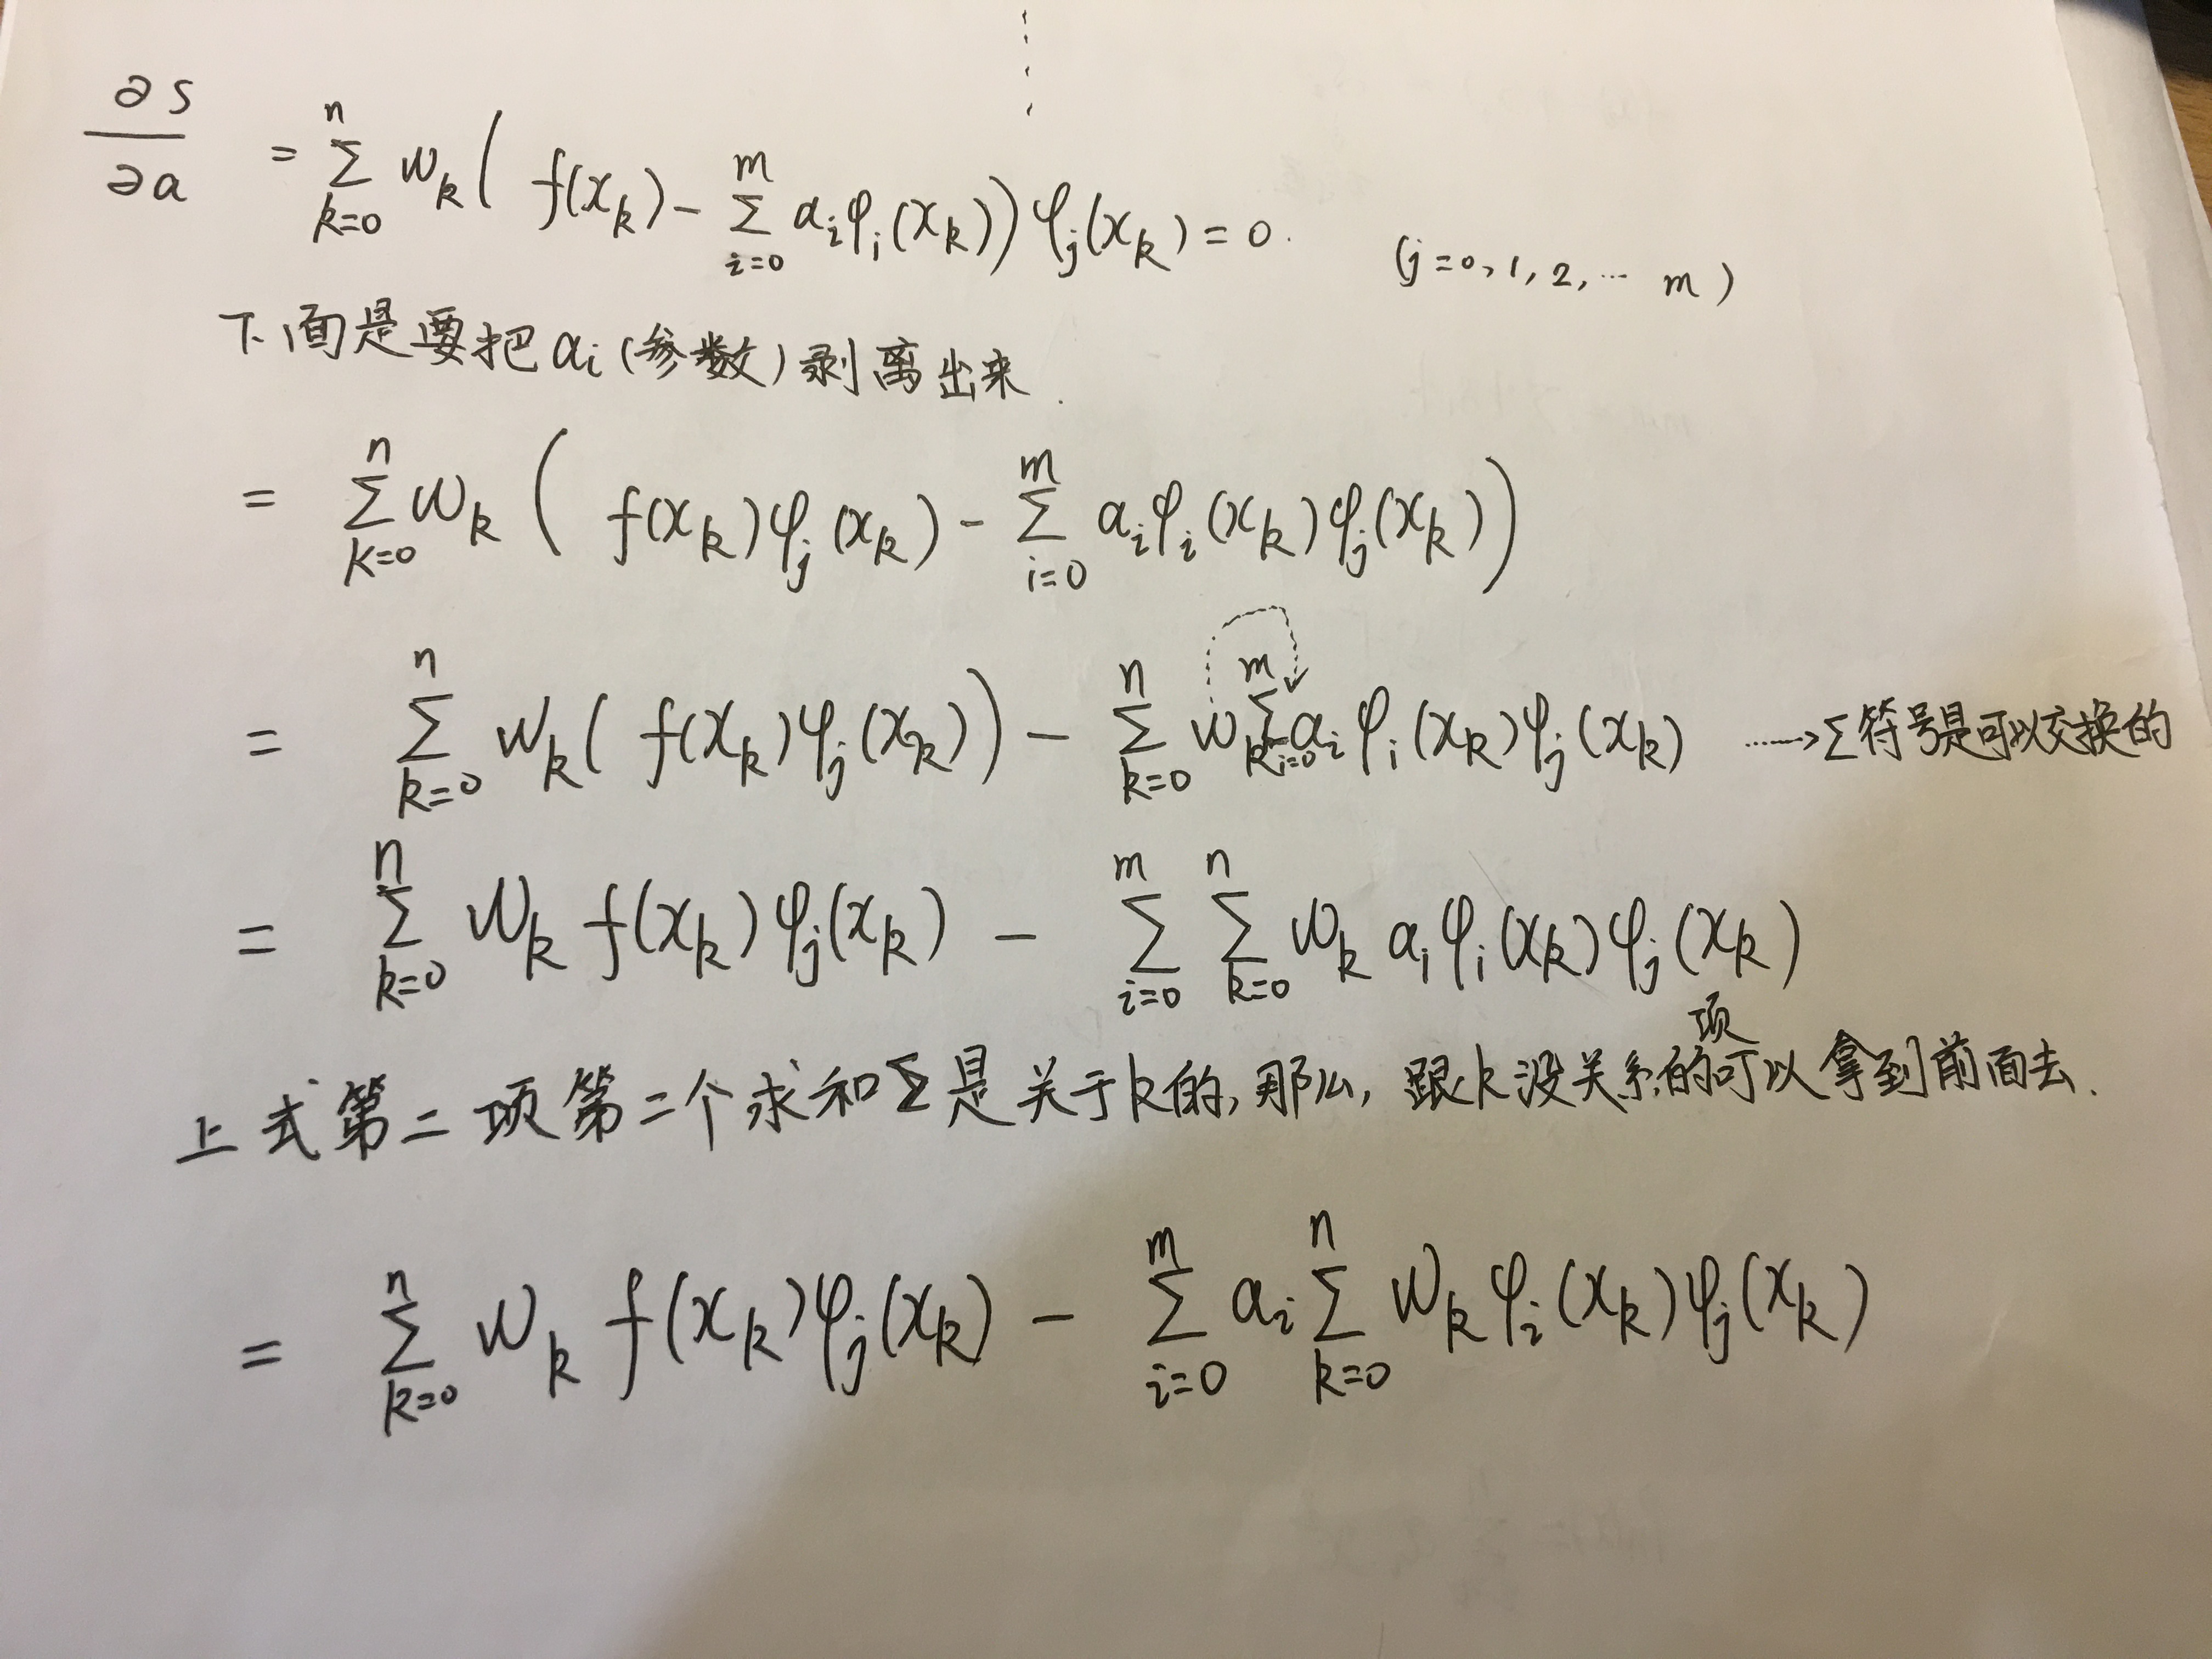 ∂S/∂a = \sum_{k=0}^{n} w_k ( f(x_k) - \sum_{i=0}^{m} a_i φ_i(x_k) ) φ_j(x_k) = 0. (j=0, 1, 2, ... m)
下面是要把 a_i (参数) 剥离出来.
= \sum_{k=0}^{n} w_k ( f(x_k) φ_j(x_k) - \sum_{i=0}^{m} a_i φ_i(x_k) φ_j(x_k) )
= \sum_{k=0}^{n} w_k ( f(x_k) φ_j(x_k) ) - \sum_{k=0}^{n} w_k \sum_{i=0}^{m} a_i φ_i(x_k) φ_j(x_k) ----> Σ符号是可以交换的
= \sum_{k=0}^{n} w_k f(x_k) φ_j(x_k) - \sum_{i=0}^{m} \sum_{k=0}^{n} w_k a_i φ_i(x_k) φ_j(x_k)
上式第二项第二个求和Σ是关于k的, 那么, 跟k没关系的项可以拿到前面去.
= \sum_{k=0}^{n} w_k f(x_k) φ_j(x_k) - \sum_{i=0}^{m} a_i \sum_{k=0}^{n} w_k φ_i(x_k) φ_j(x_k)